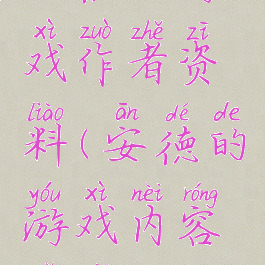 xì zuò zhě zī
戏作者资
liào ān dé de
料(安德的
yóu xì nèi róng
游戏内容